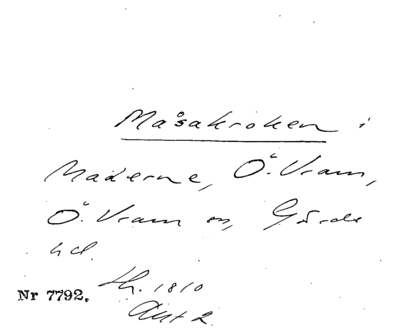 Måsakroken i
Maderne, Ö. Vram,
Ö. Vram sn, Gärds
hd.
Nr 7792. th. 1810
Akt 2